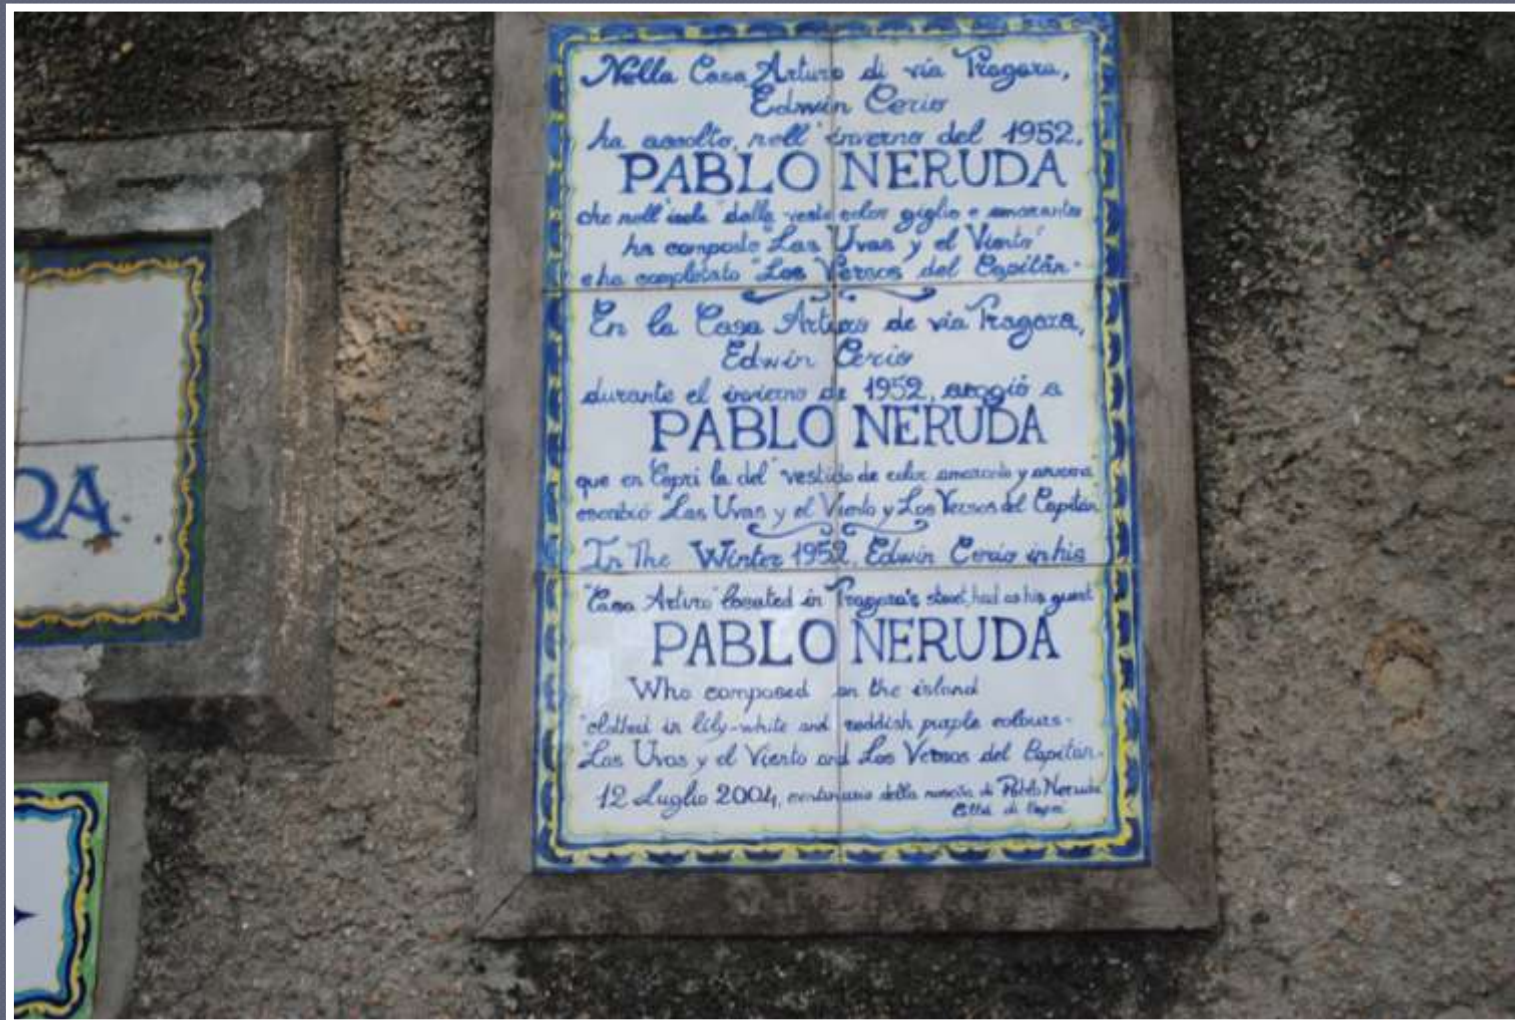 Nella Casa Arturo di via Tragara,
Edwin Cerio
ha accolto, nell'inverno del 1952,
PABLO NERUDA
che nell'isola "dalla veste color giglio e amaranto
ha composto "Las Uvas y el Viento"
e ha completato "Los Versos del Capitán"
En la Casa Arturo de via Tragara,
Edwin Cerio
durante el invierno de 1952, acogió a
PABLO NERUDA
que en Capri la del "vestido de color amaranto y
escribió Las Uvas y el Viento y Los Versos del Capitán
In The Winter 1952, Edwin Cerio in his
"Casa Arturo" located in Tragara's street, had as his guest
PABLO NERUDA
Who composed on the island
"clothed in lily-white and reddish purple colours"
"Las Uvas y el Viento and Los Versos del Capitán"
12 Luglio 2004, centenario della nascita di Pablo Neruda
Città di Capri
RA